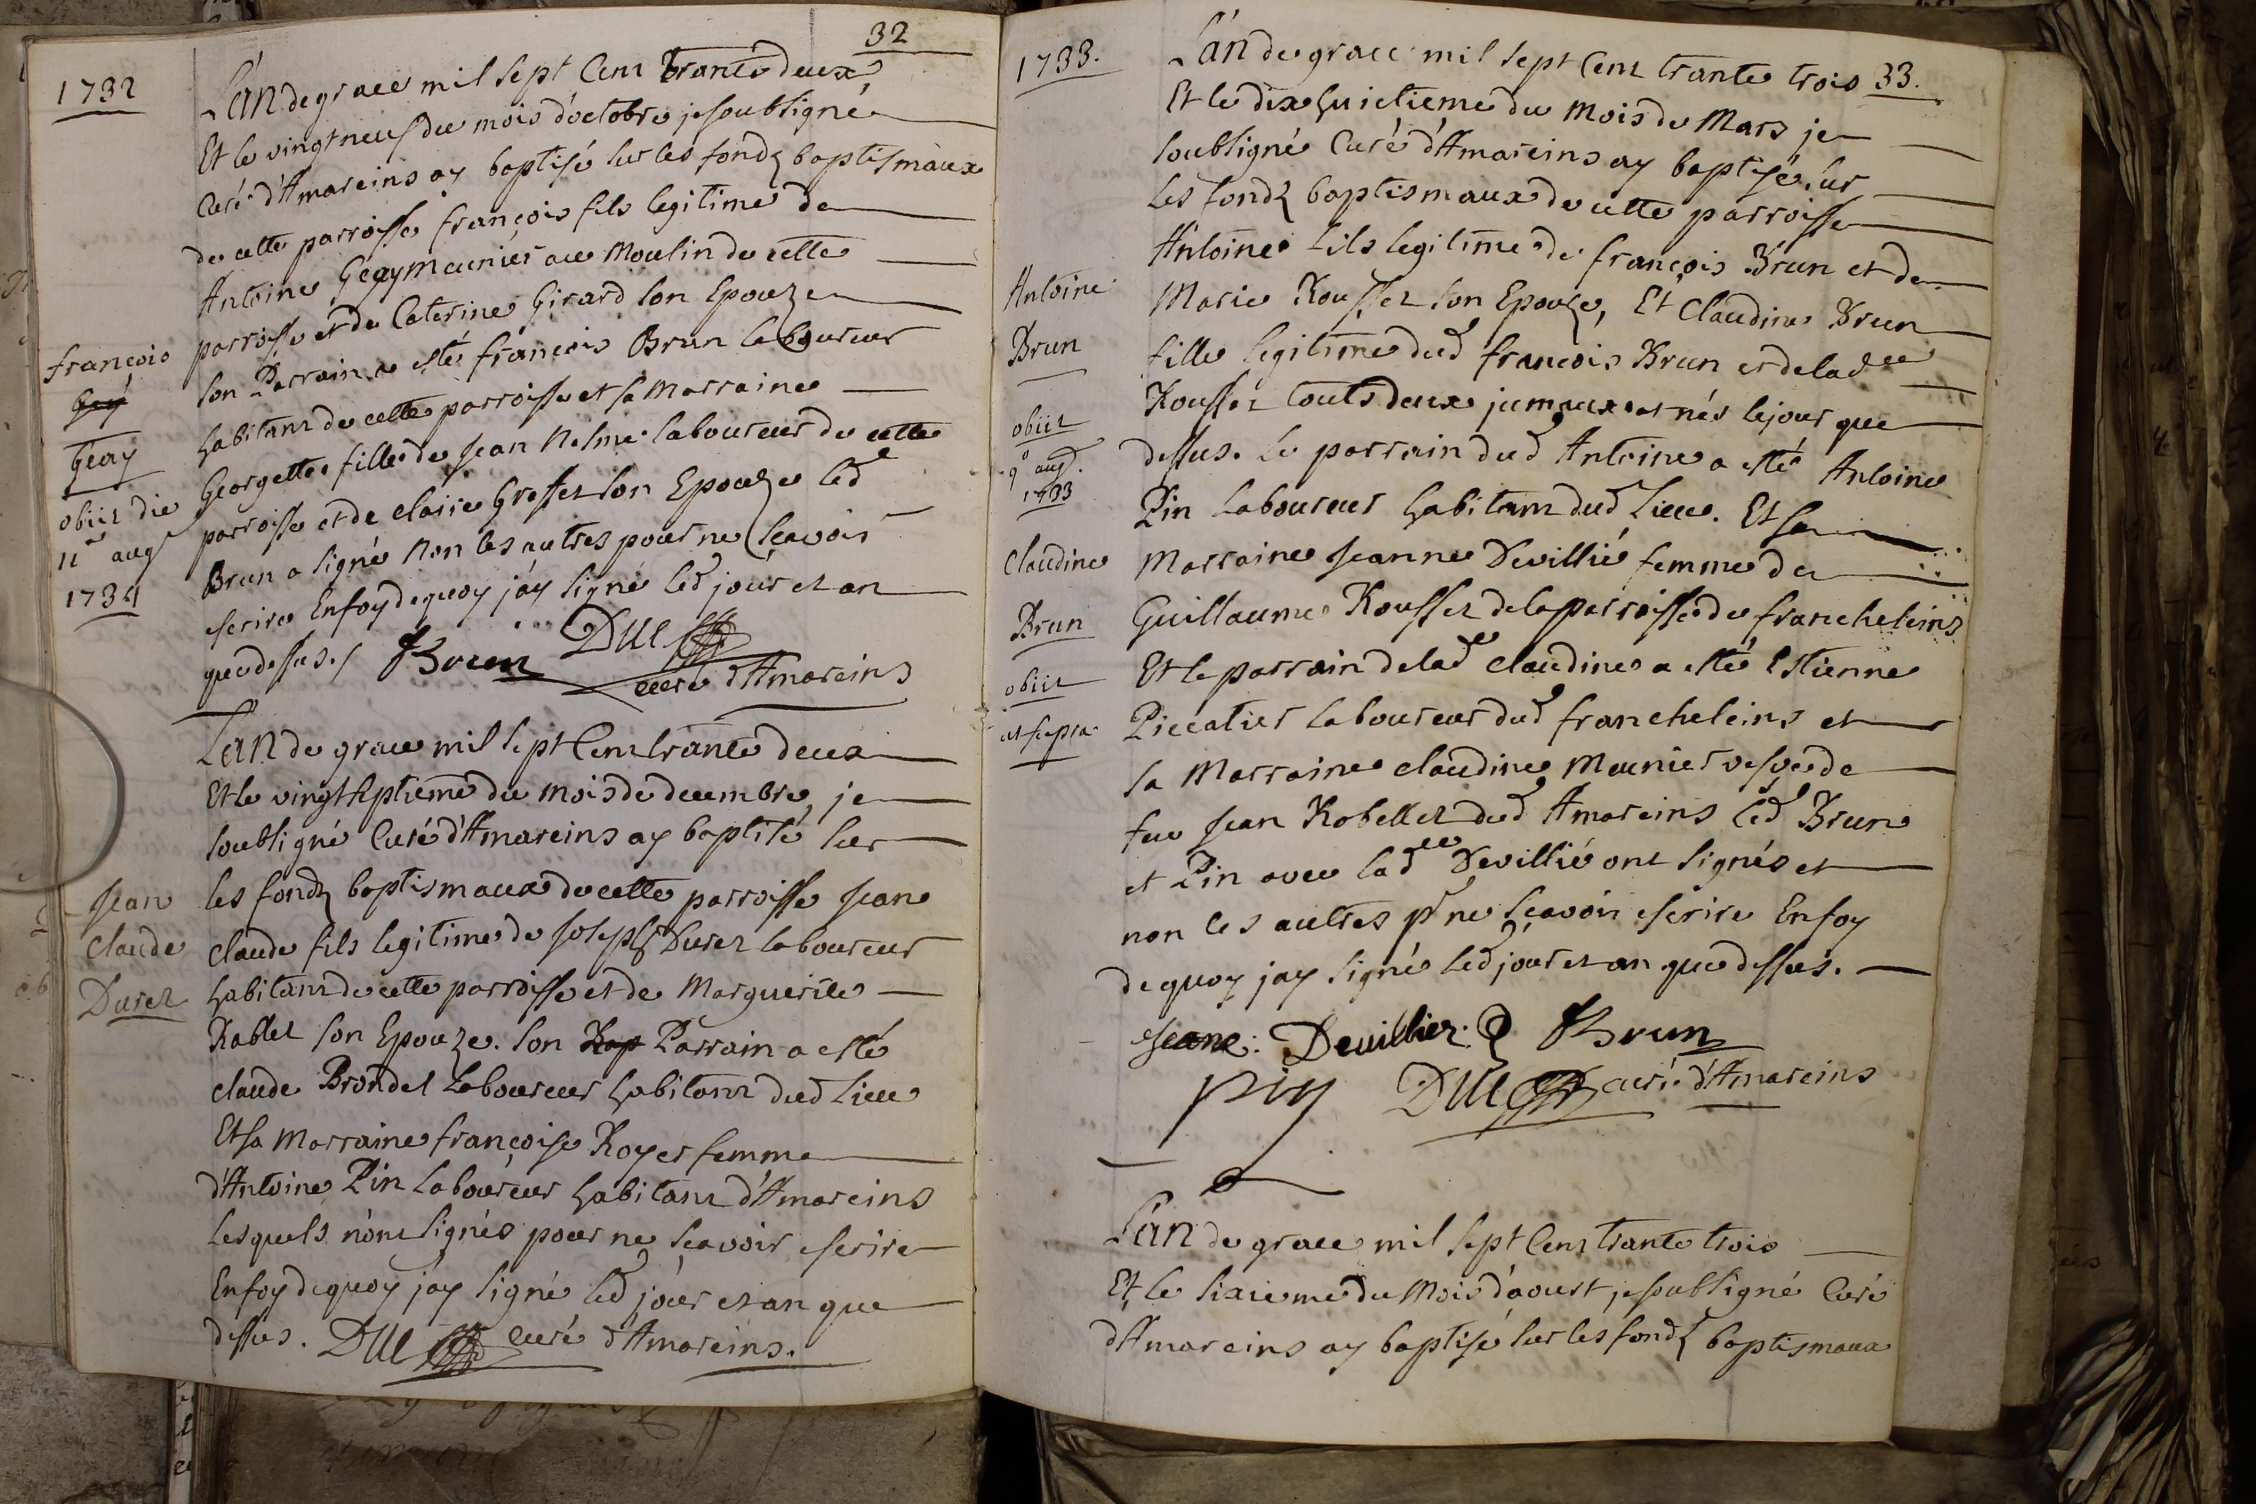 32
1732
L'an de grace mil sept Cent Trante deux
Et le vingt neuf du mois d'octobre je soubsigné
Curé d'Amareins ay baptisé sur les fondz baptismaux
de cette parroisse françois fils legitime de
Antoine Geay meunier au Moulin de cette
parroisse et de Caterine Girard son Epouze
son Parrain a esté françois Brun laboureur
habitant de cette parroisse et sa Marraine
Georgette fille de Jean laboureur de cette
parroisse et de claire Grosset son Epouze led
Brun a signé non les autres pour ne sçavoir
escrire En foy de quoy j'ay signé led jour et an
que dessus. / Brun DUC
curé d'Amareins
françois
Gey
Geay
obiit die
11a aug
1734
L'an de grace mil sept Cent trante deux
Et le vingt septieme du mois de decembre, je
soubsigné Curé d'Amareins ay baptisé sur
les fondz baptismaux de cette parroisse Jean
claude fils legitime de Joseph Duret laboureur
habitant de cette parroisse et de Marguerite
Rablet son Epouze. son Rap Parrain a esté
claude Brondel Laboureur habitant dud Lieu
Et sa Marraine françoise Royer femme
d'Antoine Pin Laboureur habitant d'Amareins
Lesquels n'ont signés pour ne sçavoir escrire
En foy de quoy j'ay signé led jour et an que
dessus. DUC Curé d'Amareins.
Jean
claude
Duret
1733.
33.
L'an de grace mil sept Cent trante trois
Et le dix huictieme du Mois de Mars je
soubsigné Curé d'Amareins ay baptisé sur
les fondz baptismaux de cette parroisse
Antoine fils legitime de françois Brun et de
Marie Rousset son Epouze, Et Claudine Brun
fille legitime dud françois Brun et de lad
Rousset touts deux jumeaux et nés le jour que
dessus. Le parrain dud Antoine a esté Antoine
Pin Laboureur habitant dud Lieu. Et sa
Marraine Jeanne Devillié femme de
Guillaume Rousset de la parroisse de francheleins
Et le parrain de lad claudine a esté Estienne
Piccatier laboureur dud francheleins et
sa Marraine claudine Meunier vefve de
feu Jean Robellet dud Amareins led Brun
et Pin avec lad Devillié ont signés et
non les autres pr ne sçavoir escrire En foy
de quoy jay signé led jour et an que dessus.
Jeane: Deuillier. Brun
pin DUC curé d'Amareins
Antoine
Brun
obiit
9a aug.
1733
Claudine
Brun
obiit
ut supra
L'an de grace mil sept Cent trante trois
Et le sixieme du Mois d'aoust, je soubsigné Curé
d'Amareins ay baptisé sur les fondz baptismaux